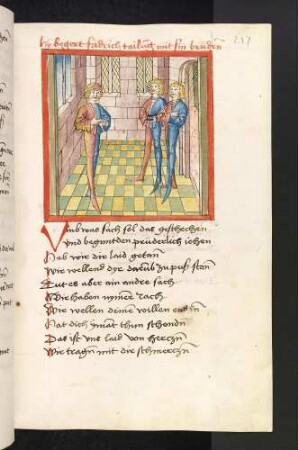 hie begert fridrich tailung mit sin brudern
217
Umb was sach sol das geschechen
Und begunden pruderlich iechen
Hab wir dir laid getan
Wir wellend dyr darub zu pus stan
Tut es aber ain andre sach
Wir haben nymer rach
Wir wellen deine willen
Hat dich ymant thun schenden
Das ist uns laid von herczen
Wir tragen mit dir schmerczen